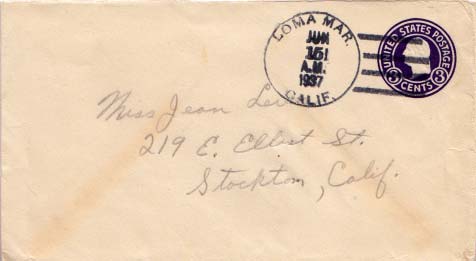 LOMA MAR.
JUN
151
A.M.
1937
CALIF.
UNITED STATES POSTAGE
3 CENTS 3
Miss Jean
219 E. St.
Stockton, Calif.